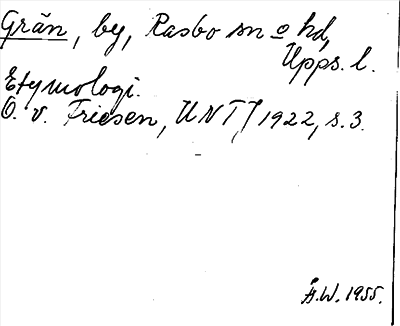 Grän, by, Rasbo sn o hd,
Upps. l.
Etymologi.
O. v. Friesen, UNT / 1922, s. 3.
Å.W. 1955.